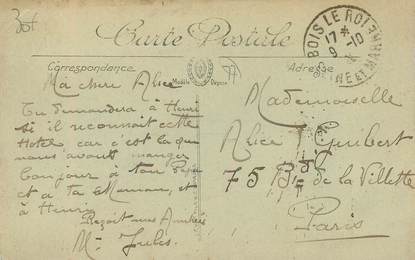 Carte Postale
Correspondance
Adresse
Modèle Déposé
BOIS LE ROI
17 -10
SEINE ET MARNE
Ma chere Alice
Tu demandera à Henri
si il reconnait cette
Hotel, car c'est la que
nous avons manger
bonjour à ton Papa
et a ta Maman, et
à Henri
Reçoit nos Amitiés
Mr Jules.
Mademoiselle
Alice Guibert
75 de la Villette
Paris